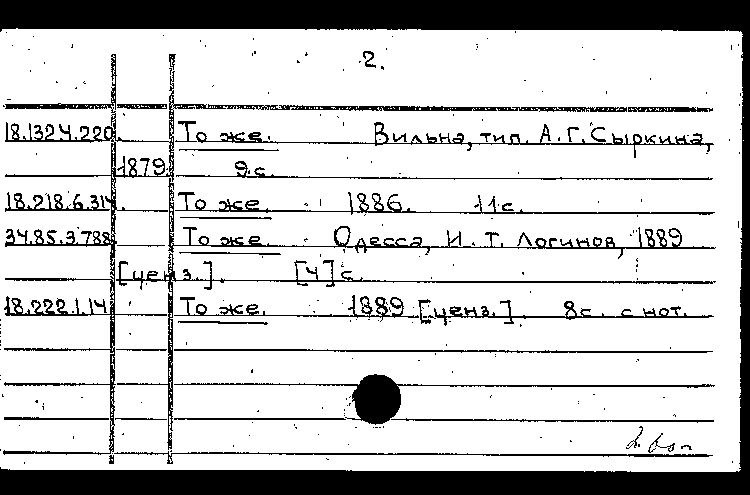 2.
18.1324.220. То же. Вильна, тип. А.Г. Сыркина,
1879. 9 с.
18.218.6.314. То же. 1886. 11 с.
34.85.3.788. То же. Одесса, И. Т. Логинов, 1889
[ценз.]. [4] с.
18.222.1.14 То же. 1889 [ценз.]. 8 с. с нот.